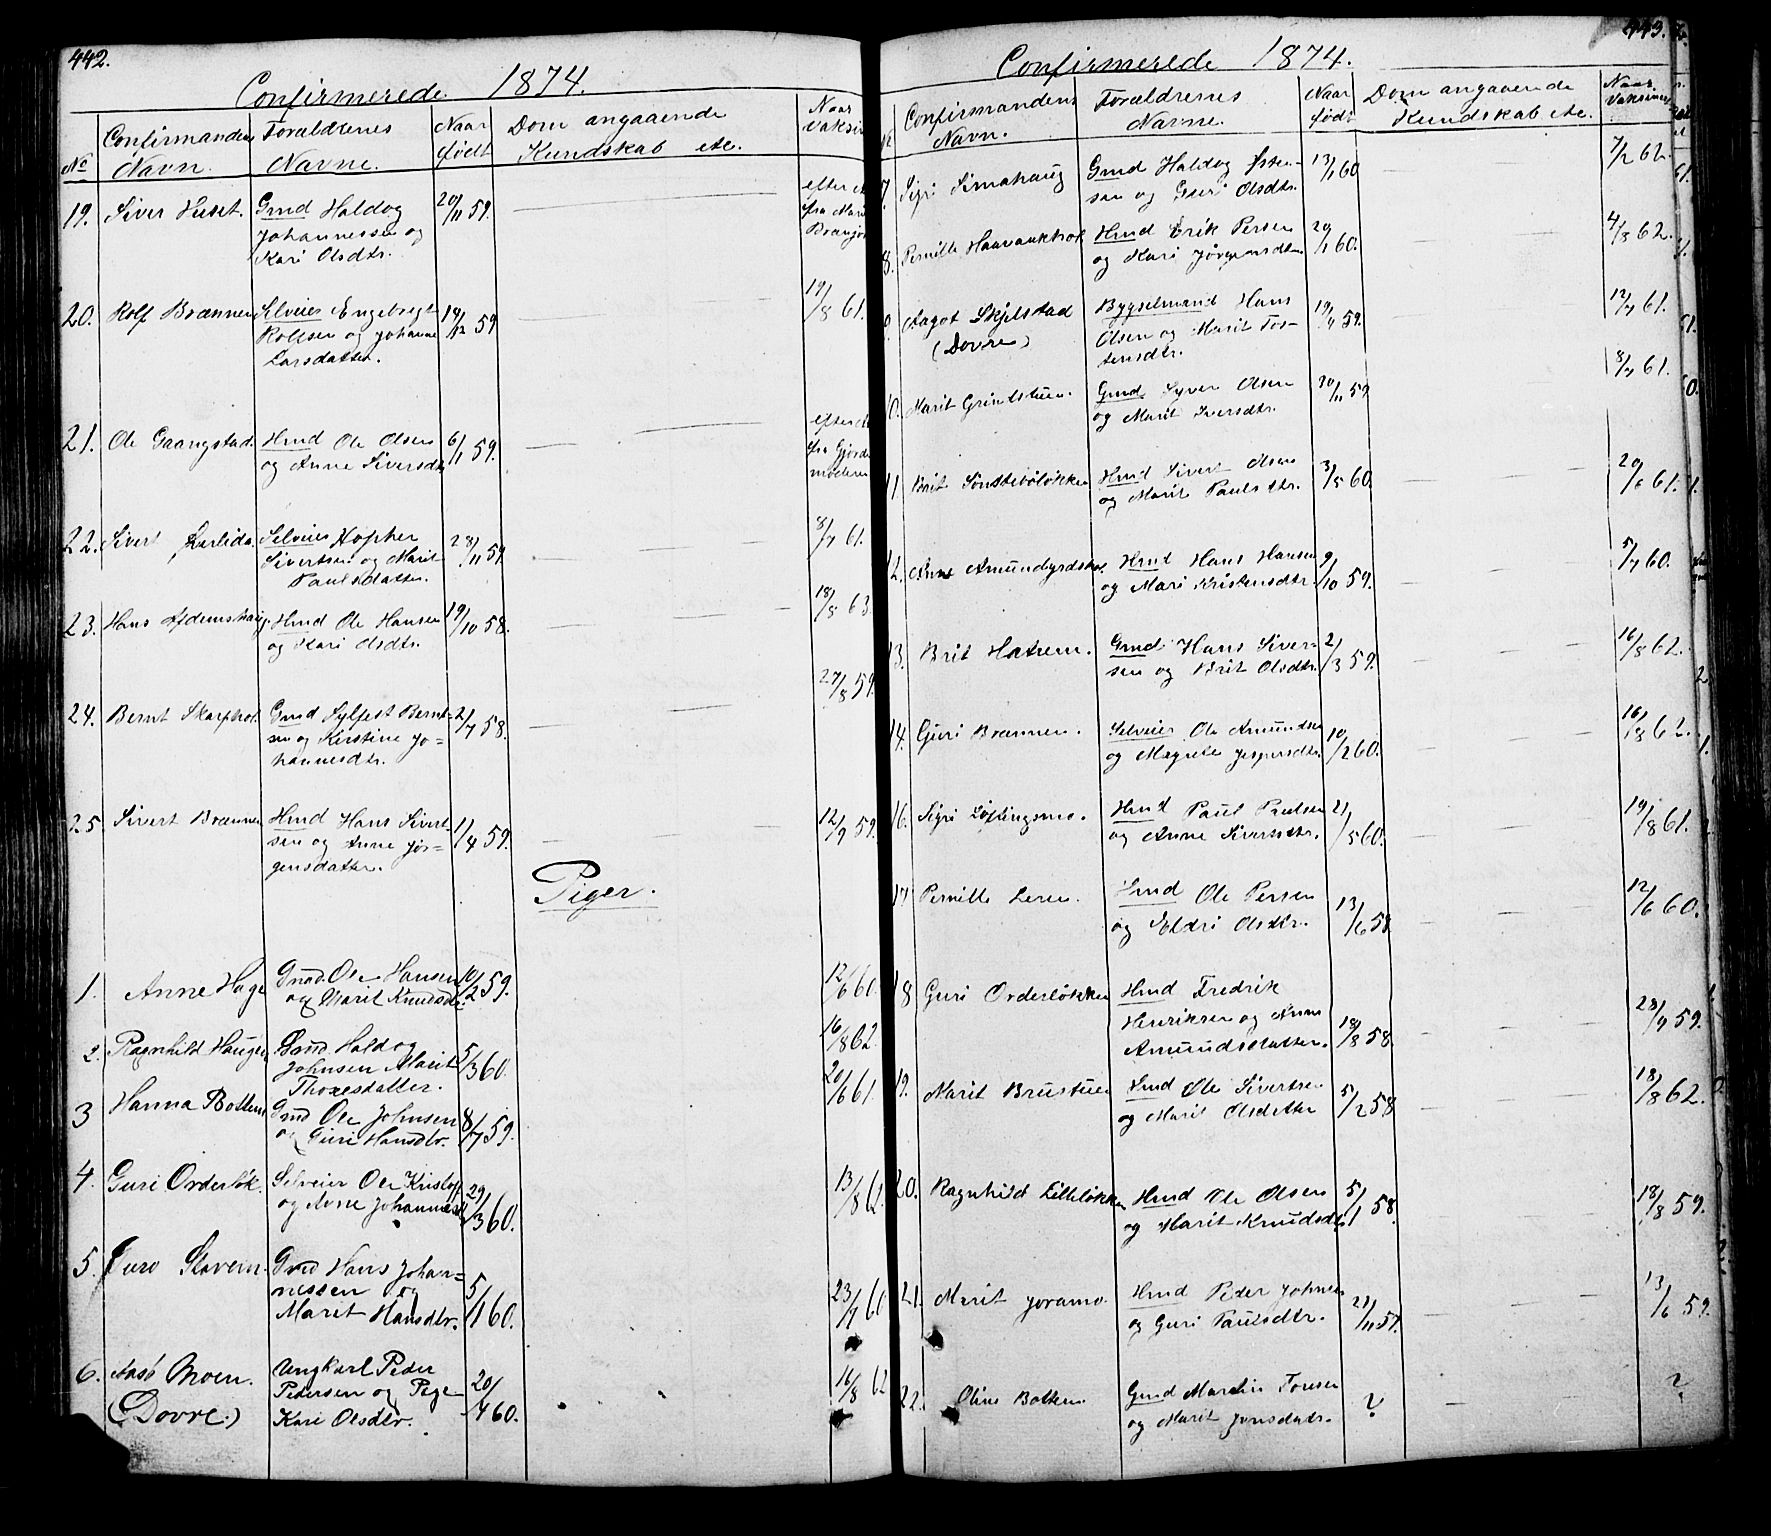 442.
Confirmerede 1874.
No
Confirmandens Navn.
Forældrenes Navne.
Naar født
Dom angaaende Kundskab etc.
Naar Vaksin
19. Siver Huset. Gmd Haldog 20/11 59. efter
Johannessen og fra
Kari Olsdtr.
20. Rolf Brænnen Selveier Engebregt 14/12 59 19/8 61.
Rolfsen og Johanne
Larsdatter.
21. Ole Gaangstad. Hmd Ole Olsen 6/1 59. efter
og Anne Siversdtr fra
22. Sivert Lurlida. Selveier Hopher 28/11 59. 8/7 61.
Sivertsen og Marit
Paulsdatter.
23. Hans Hmd Ole Hansen 19/10 58. 18/8 63.
og Kari Olsdtr.
24. Bernt Skarphol. Gmd Sylfest Bernt- 2/7 58. 27/8 59.
sen og Kirstine Jo=
hannesdtr.
25. Sivert Brænnen Hmd Hans Sivert- 1/4 59. 12/9 59.
sen og Anne Jør=
gensdatter.
Piger.
1. Anne Hage Gmd. Ole Hansen 10/2 59. 12/6 60.
og Marit Knudsdtr.
2. Ragnhild Haugen Gmd. Haldog 5/3 60. 16/8 62.
Johnsen Marit
Thoresdatter.
3 Hanna Bottem Gmd Ole Johnsen 8/7 59. 20/6 61.
og Guri Hansdtr.
4. Guri Orderløk. Selveier Ole Kristoff 29/3 60. 13/8 62.
og Anne Johannesd
5. Guro Stavem. Gmd Hans Johan= 5/1 60. 23/7 60
nessen og
Marit Hansdtr.
6. Moen. Ungkarl Peder 20/4 60. 16/8 62
(Dovre.) Pedersen og Pige
Kari Olsdtr.
443.
Confirmerede 1874.
Confirmandens Navn.
Forældrenes Navne.
Naar født
Dom angaaende Kundskab etc.
Naar Vaksineret
7. Sigri Gmd Haldog Østen- 13/1 60 7/2 62.
sen og Olsdtr.
8. Pernille Hmd Erik Persen 20/1 60. 4/8 62.
og Kari Jørgensdtr
9. Aagot Skjelstad Bygselmand Hans 19/4 59. 12/7 61.
(Dovre) Olsen og Marit Tos-
tensdtr.
10. Marit Grindstuen. Gmd Syver Olsen 30/11 59 8/7 61.
og Marit Iversdtr.
11 Brit Sønstebøløkken Hmd Sivert Olsen 3/5 60. 20/6 61.
og Marit Paulsdtr.
12. Anne Hmd Hans Hansen 9/10 59. 5/7 60.
og Mari Kristensdtr.
13. Brit Hatrem. Gmd Hans Siver- 2/3 59. 16/8 62.
sen og Brit Olsdtr.
14. Guri Brænnen. Selveier Ole Amundsen 10/2 60. 16/8 62.
og Magrete Jespersdtr.
16. Sigri Løftingsmo. Hmd Paul Paulsen 21/5 60. 19/8 61.
og Anne Siversdtr.
17 Pernille Leren. Hmd Ole Persen 13/6 59. 12/6 60.
og Eldri Olsdtr.
18 Guri Orderløkken Hmd Fredrik 18/8 58. 28/9 59.
Henriksen og Anne
Amundsdatter.
19. Marit Brustuen Hmd Ole Sivertsen 5/2 58 18/8 62.
og Marit Olsdatter
20. Ragnhild Lilleløkken Hmd Ole Olsen 5/1 58. 18/8 59.
og Marit Knudsdtr
21. Marit Joramo. Hmd Peder Johnsen 21/11 57. 13/6 59.
og Guri Paulsdtr.
22. Oline Bottem. Gmd Martin Toresen ? ?
og Marit Jonsdatr.